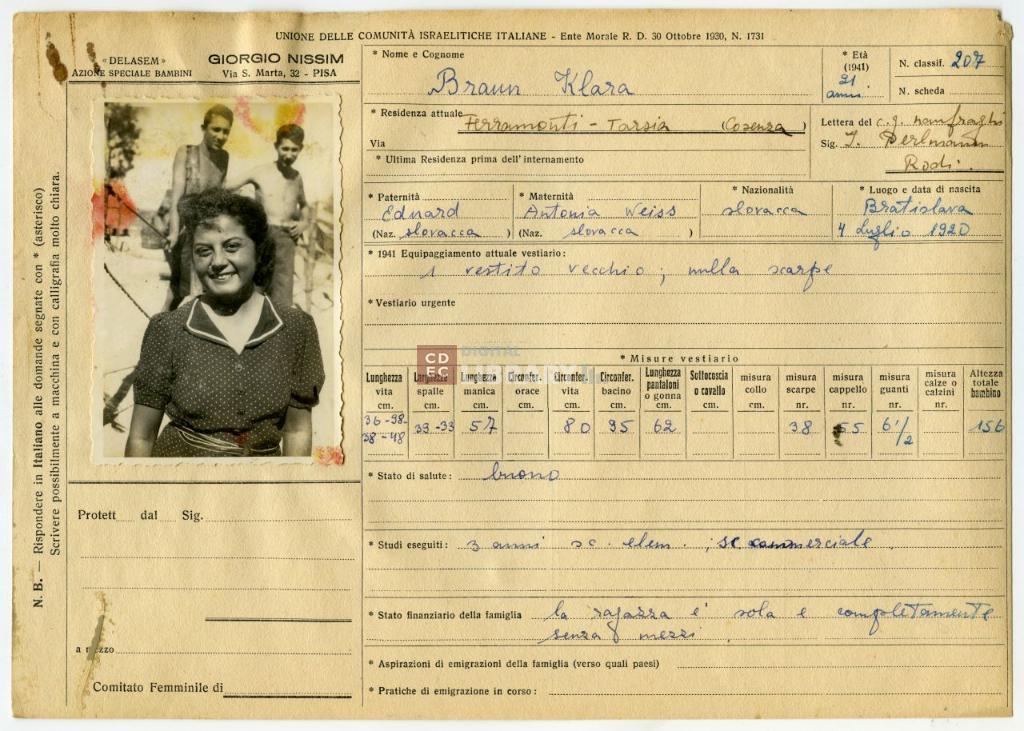 UNIONE DELLE COMUNITÀ ISRAELITICHE ITALIANE - Ente Morale R. D. 30 Ottobre 1930, N. 1731
« DELASEM »
AZIONE SPECIALE BAMBINI
GIORGIO NISSIM
Via S. Marta, 32 - PISA
* Nome e Cognome
Braun Klara
* Età
(1941)
21
anni
N. classif. 207
N. scheda
* Residenza attuale Ferramonti - Tarsia (Cosenza)
Via
* Ultima Residenza prima dell'internamento
Lettera del c.g. naufraghi
Sig. I. Perlmann
Rodi.
* Paternità
Eduard
(Naz. slovacca )
* Maternità
Antonia Weiss
(Naz. slovacca )
* Nazionalità
slovacca
* Luogo e data di nascita
Bratislava
4 Luglio 1920
* 1941 Equipaggiamento attuale vestiario:
1 vestito vecchio; nulla scarpe
* Vestiario urgente
CDEC DIGITAL LIBRARY
* Misure vestiario
Lunghezza vita cm.
Larghezza spalle cm.
Lunghezza manica cm.
Circonfer. orace cm.
Circonfer. vita cm.
Circonfer. bacino cm.
Lunghezza pantaloni o gonna cm.
Sottocoscia o cavallo cm.
misura collo cm.
misura scarpe nr.
misura cappello nr.
misura guanti nr.
misura calze o calzini nr.
Altezza totale bambino
38-48 39-33 57 80 95 62 38 55 6 1/2 156
* Stato di salute: buono
* Studi eseguiti: 3 anni sc. elem., sc commerciale
* Stato finanziario della famiglia la ragazza e' sola e completamente
senza mezzi.
* Aspirazioni di emigrazioni della famiglia (verso quali paesi)
* Pratiche di emigrazione in corso:
Protett dal Sig.
a mezzo
Comitato Femminile di
N. B. — Rispondere in Italiano alle domande segnate con * (asterisco)
Scrivere possibilmente a macchina e con calligrafia molto chiara.